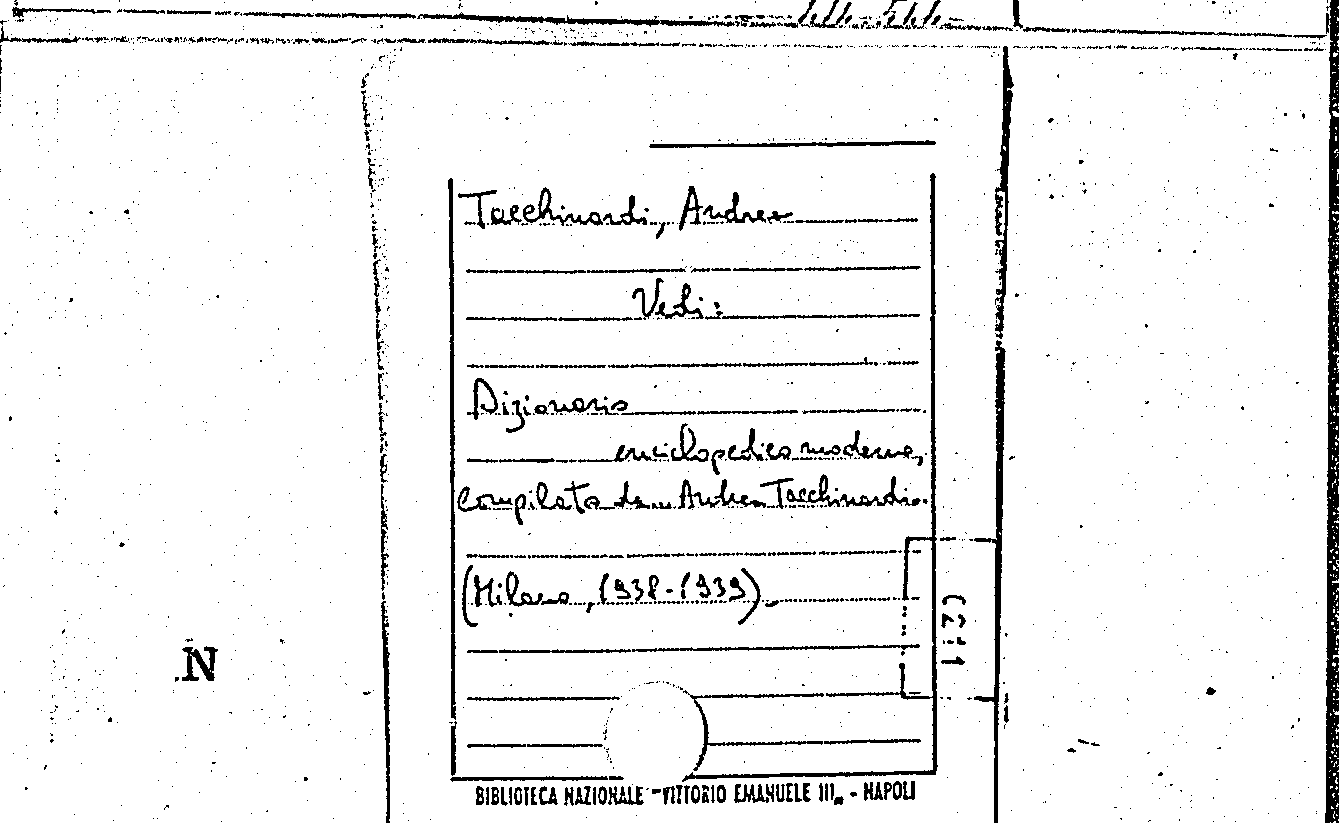 Tacchinardi, Andrea
Vedi:
Dizionario
enciclopedico moderno,
compilato da Andrea Tacchinardi.
(Milano, 1938-1939).
N
BIBLIOTECA NAZIONALE "VITTORIO EMANUELE III„ - NAPOLI